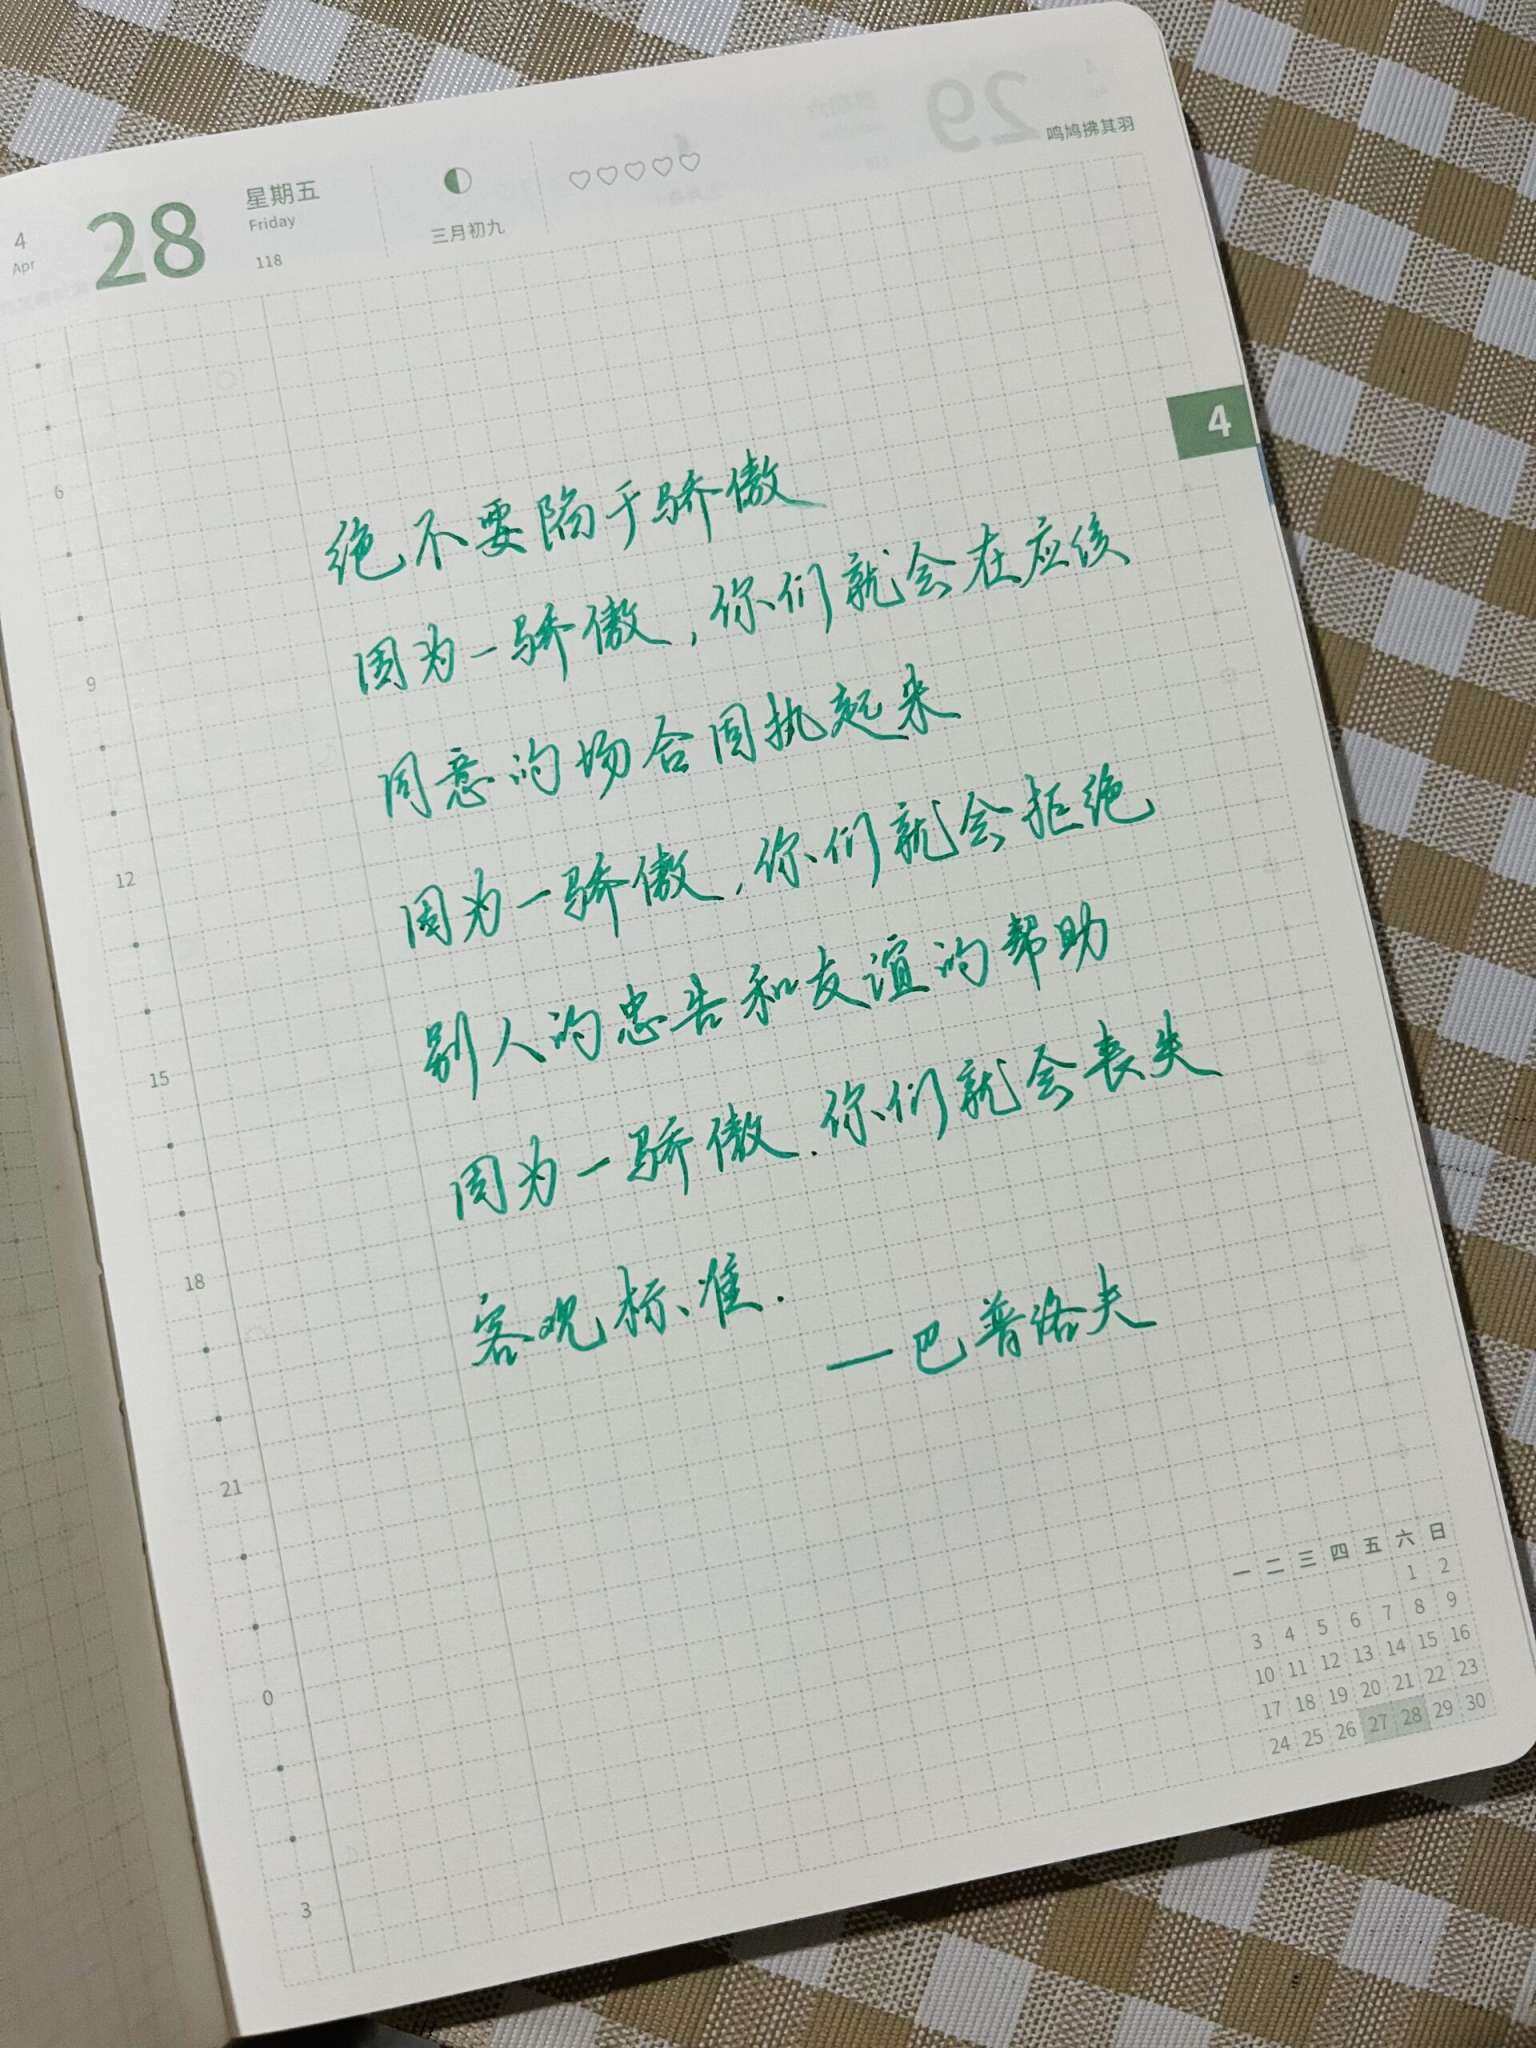 4
Apr
28
星期五
Friday
118
三月初九
29
鸣鸠拂其羽
4
绝不要陷于骄傲
因为一骄傲，你们就会在应该
同意的场合固执起来
因为一骄傲，你们就会拒绝
别人的忠告和友谊的帮助
因为一骄傲，你们就会丧失
客观标准.
—巴普洛夫
6
9
12
15
18
21
0
3
一 二 三 四 五 六 日
1 2
3 4 5 6 7 8 9
10 11 12 13 14 15 16
17 18 19 20 21 22 23
24 25 26 27 28 29 30